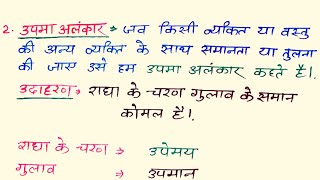 2. उपमा अलंकार → जब किसी व्यक्ति या वस्तु
की अन्य व्यक्ति के साथ समानता या तुलना
की जाए उसे हम उपमा अलंकार कहते है।.
उदाहरण:- राधा के चरण गुलाब के समान
कोमल है।.
राधा के चरण ⇒ उपेमय
गुलाब ⇒ उपमान